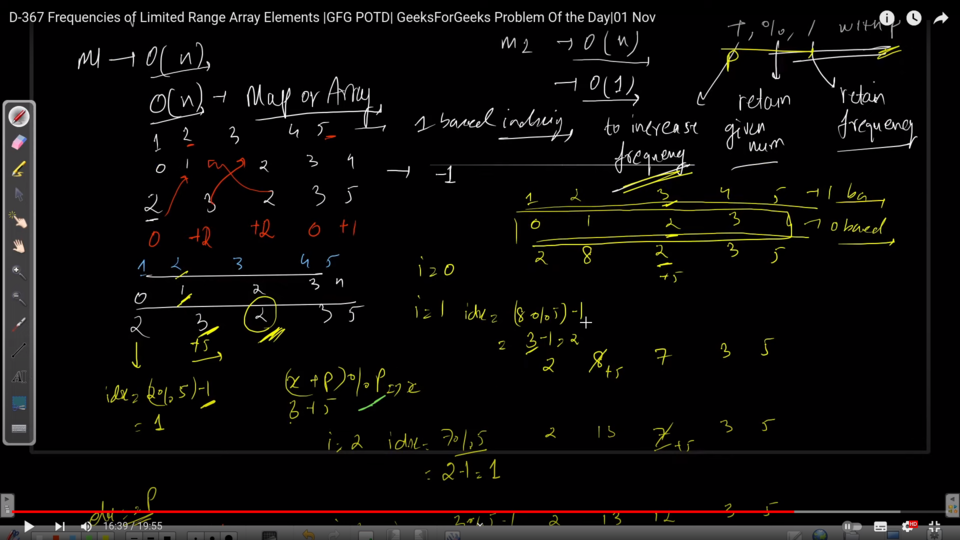 D-367 Frequencies of Limited Range Array Elements |GFG POTD| GeeksForGeeks Problem Of the Day|01 Nov
m1 → O(n)
O(n) → Map or Array
1 2 3 4 5 → 1 based indexing
0 1 2 3 4 → -1
2 3 2 3 5
0 +2 +2 0 +1
1 2 3 4 5
0 1 2 3 4
2 3 2 3 5
+5
idx = (2%5)-1
= 1
(x+P)%P => x
3+5
m2 → O(n)
→ O(1)
+, %, / with P
to increase frequency
retain given num
retain frequency
1 2 3 4 5 → 1 ba
0 1 2 3 → 0 based
2 8 2 3 5
+5
i=0
i=1 idx = (8%5)-1
= 3-1=2
2 8+5 7 3 5
i=2 idx = 7%5
= 2-1=1
2 13 7+5 3 5
2 13 12 3 5
16:39 / 19:55
HD